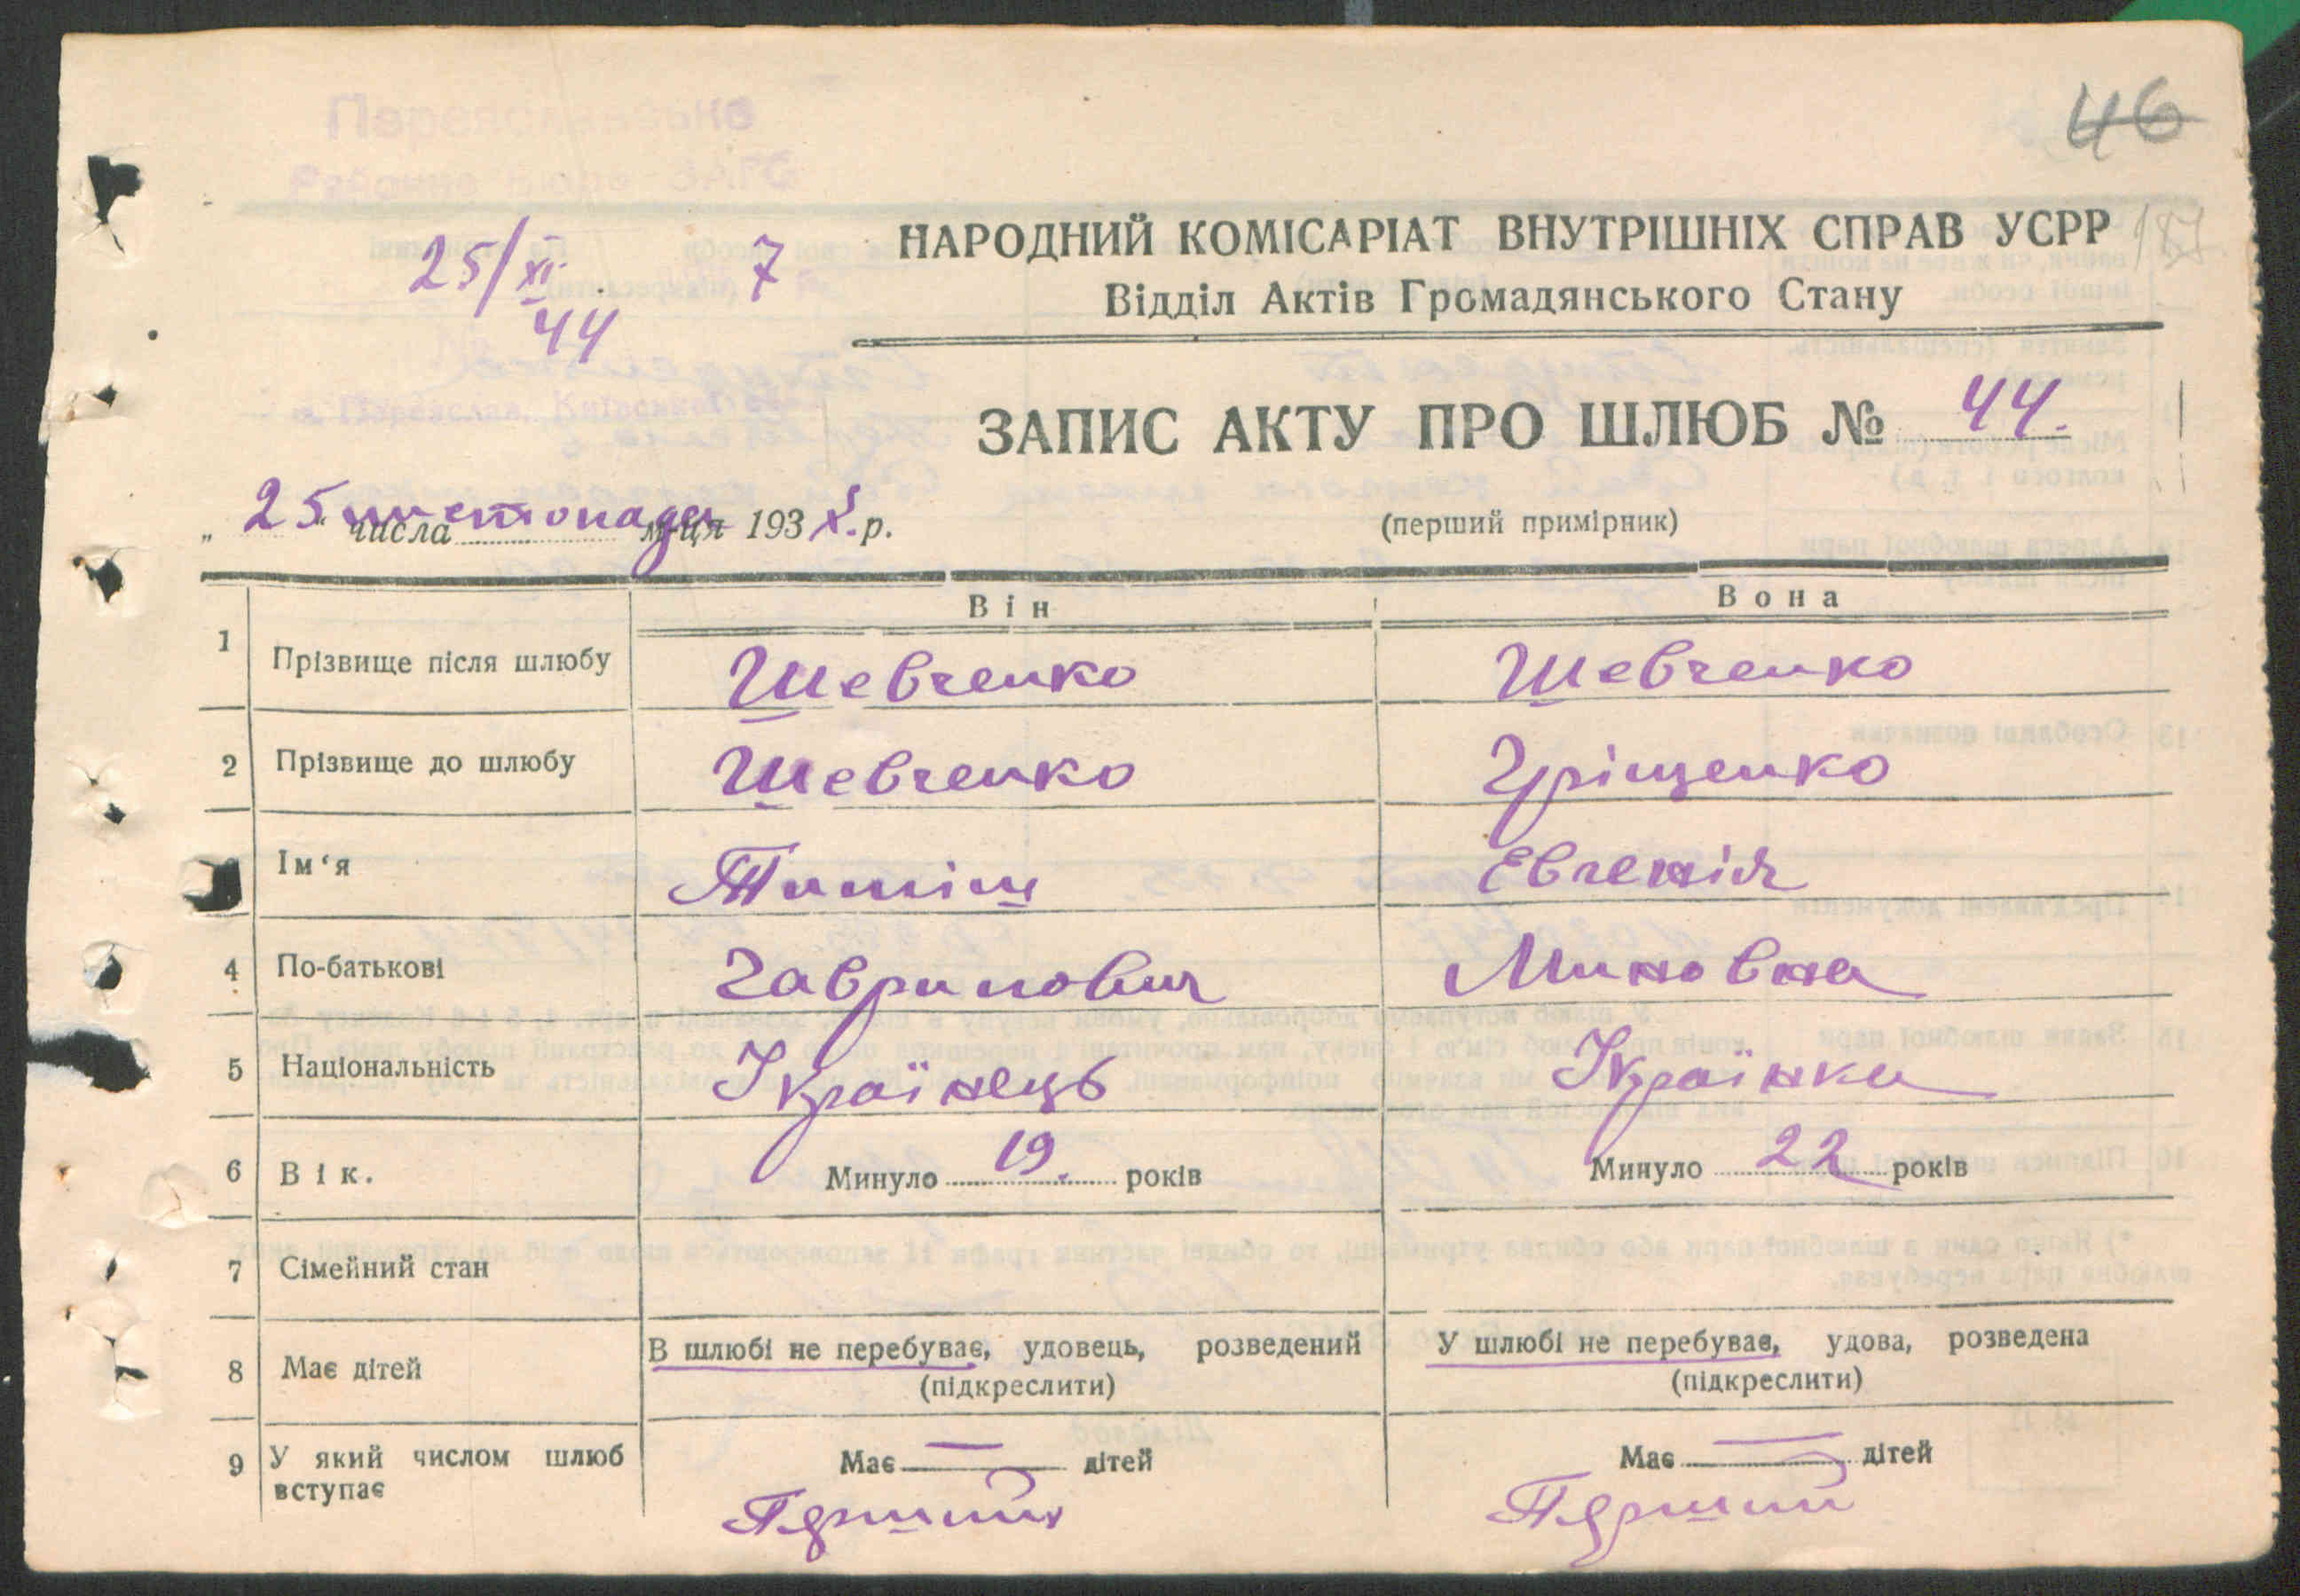 46
25/XI 7
44
НАРОДНИЙ КОМІСАРІАТ ВНУТРІШНІХ СПРАВ УСРР
187
Відділ Актів Громадянського Стану
ЗАПИС АКТУ ПРО ШЛЮБ № 44.
„ 25 " числа листопада м-ця 193 р.
(перший примірник)
Він Вона
1 Прізвище після шлюбу Шевченко Шевченко
2 Прізвище до шлюбу Шевченко Гріщенко
Ім‘я Тиміш Евгенія
4 По-батькові Гаврилович Миновна
5 Національність Українець Українка
6 Вік. Минуло 19. років Минуло 22 років
7 Сімейний стан
8 Має дітей В шлюбі не перебуває, удовець, розведений У шлюбі не перебуває, удова, розведена
(підкреслити) (підкреслити)
9 У який числом шлюб вступає Має — дітей Має — дітей
Перший Перший